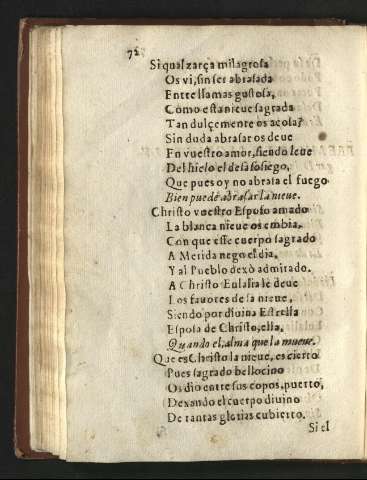 72
Si qual zarça milagrosa
Os vi, sin ser abrasada
Entre llamas gustosa,
Como esta nieue sagrada
Tan dulçemente os acosa?
Sin duda abrasaros deue
En vuestro amor, siendo leue
Del hielo el desasosiego,
Que pues oy no abrasa el fuego
Bien puede abrasar la nieue.
Christo vuestro Esposo amado
La blanca nieue os embia,
Con que esse cuerpo sagrado
A Merida nego el dia,
Y al Pueblo dexò admirado.
A Christo Eulalia le deue
Los fauores de sa nieue,
Siendo por diuina Estrella
Esposa de Christo, ella,
Quando el, alma que la mueue.
Que es Christo la nieue, es cierto
Pues sagrado bellocino
Os dio entre sus copos, puerto,
Dexando el cuerpo diuino
De tantas glorias cubierto.
Si el